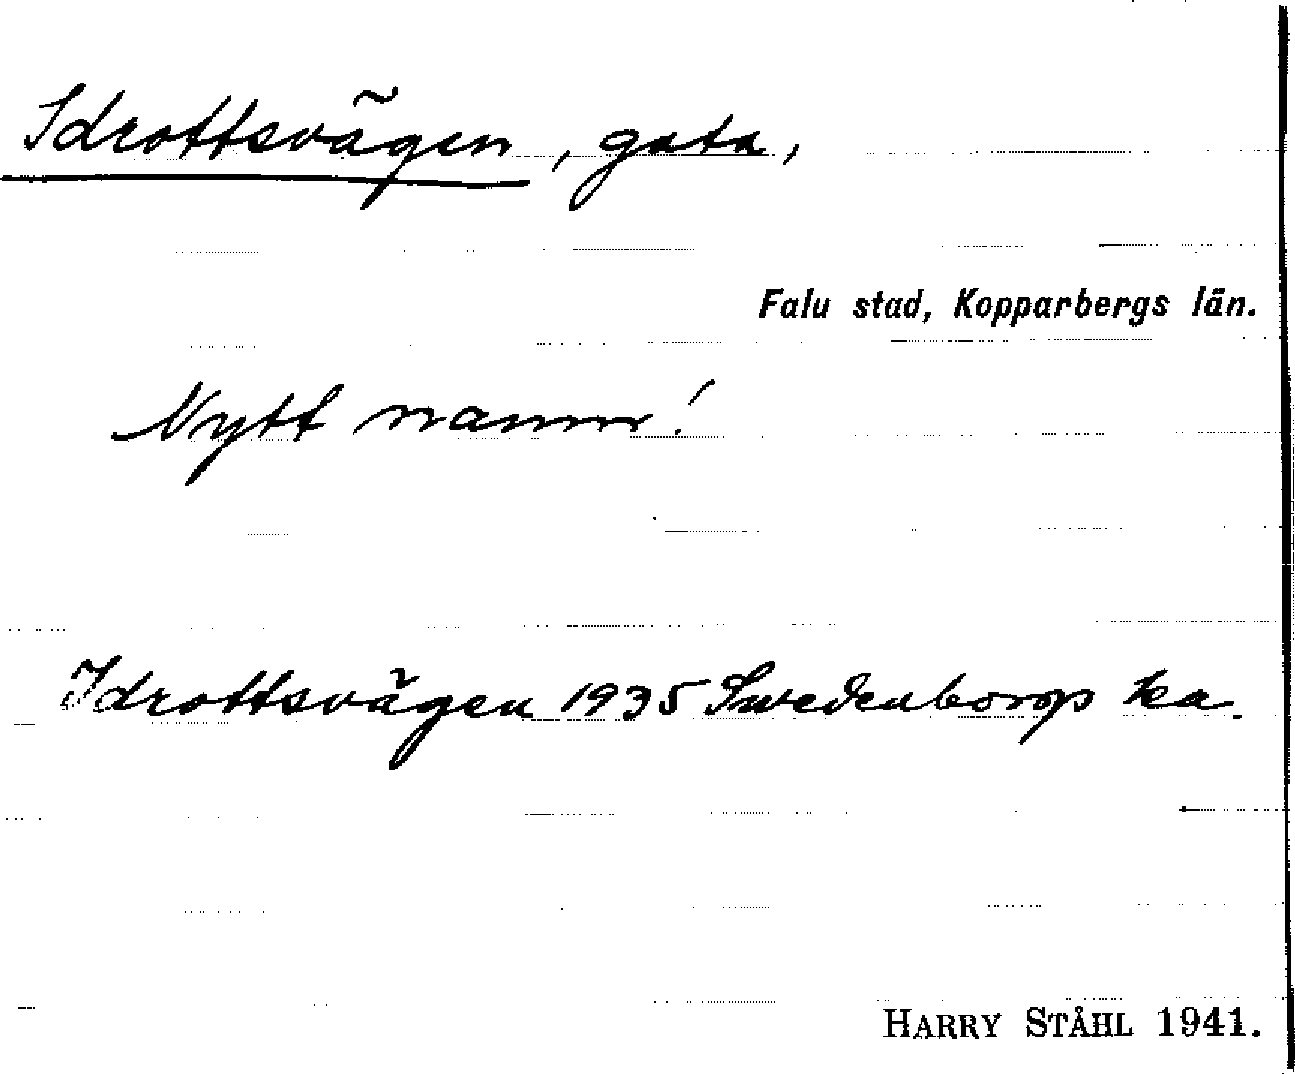 Idrottsvägen, gata,
Falu stad, Kopparbergs län.
Nytt namn!
Idrottsvägen 1935 Swedenborgs ka.
HARRY STÅHL 1941.